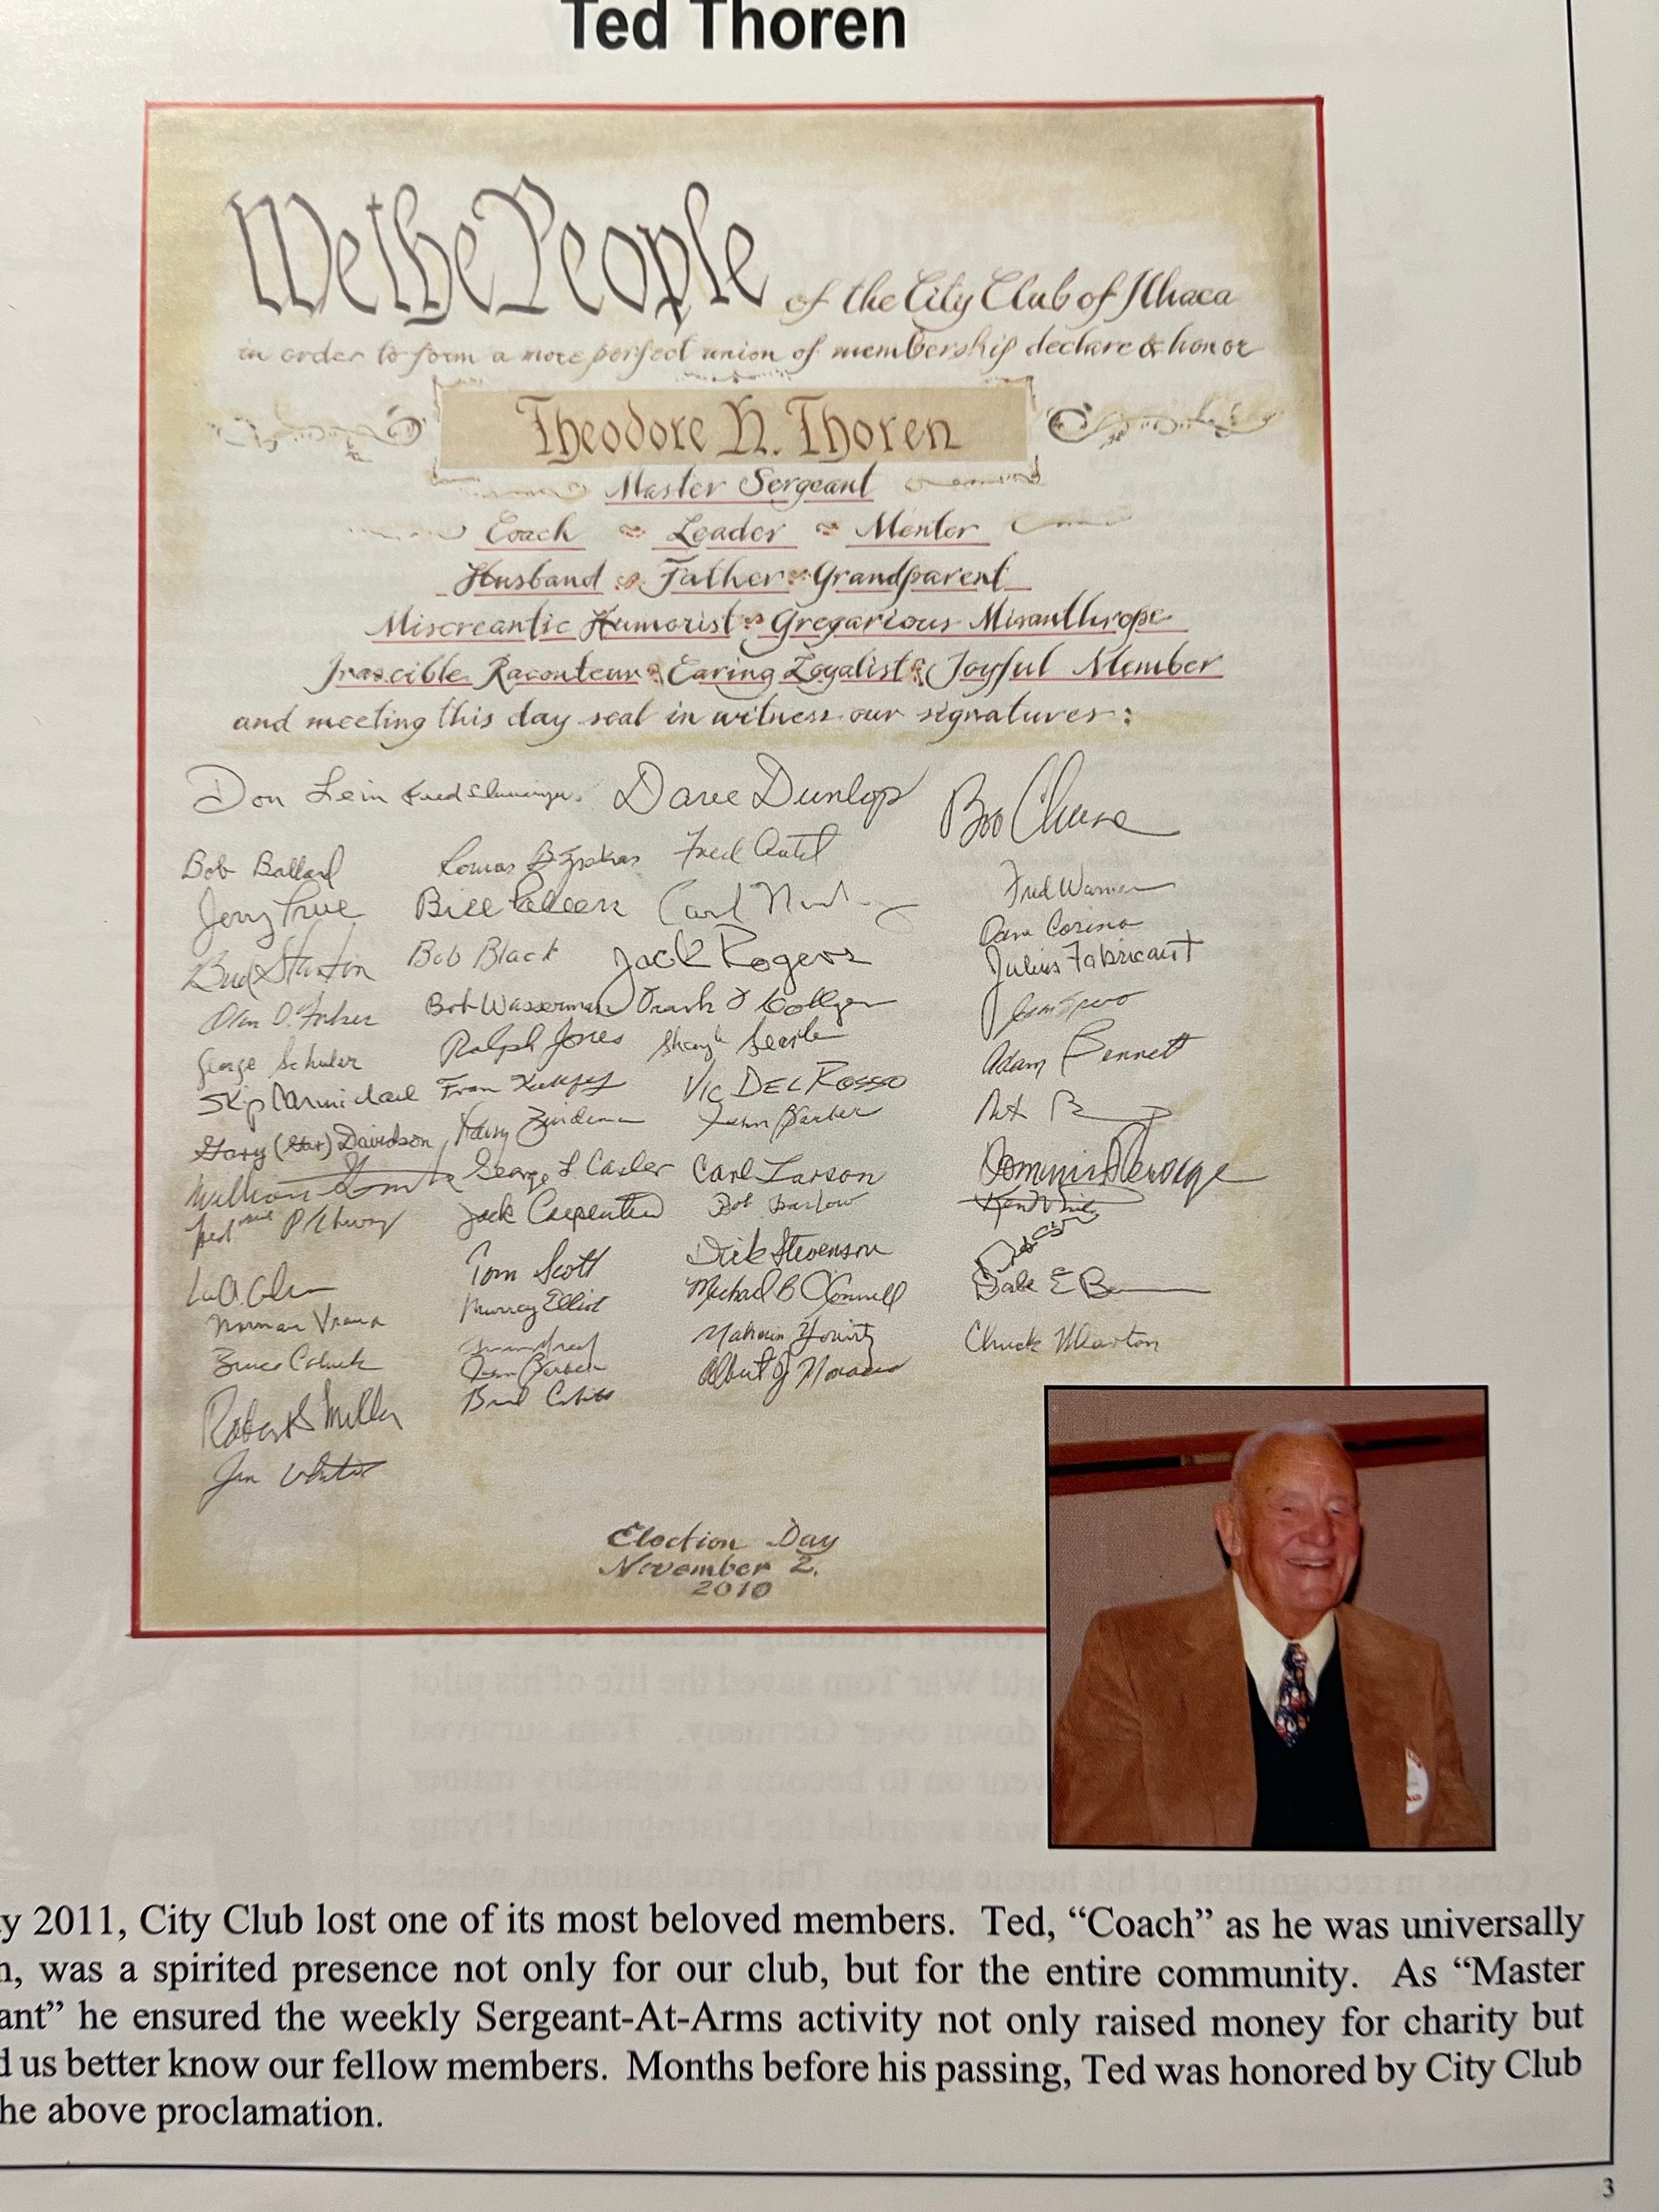 Ted Thoren
We the People of the City Club of Ithaca
in order to form a more perfect union of membership declare & honor
Theodore N. Thoren
Master Sergeant
Coach Leader Mentor
Husband Father Grandparent
Miscreantic Humorist Gregarious Misanthrope
Irascible Raconteur Caring Loyalist Joyful Member
and meeting this day seal in witness our signatures:
Don Lein Dave Dunlop
Bob Ballard Fred
Jerry True Bill Carl Fred
Bud Stanton Bob Black Jack Rogers Julius Fabricant
Bob Wasserman Frank
George Schuler Ralph Jones Adam Bennett
Skip Carmichael Fran Vic DEL ROSSO
Gary (Star) Davidson John Barber
William George Carl Larson
Jack Carpenter Bob Barlow
Tom Scott Dick Stevenson
Murray Elliot Michael B O'Connell Dale E
Norman Vrana Chuck Wharton
Bruce Albert J
Robert S Miller
Jim
Election Day
November 2.
2010
y 2011, City Club lost one of its most beloved members. Ted, “Coach” as he was universally
n, was a spirited presence not only for our club, but for the entire community. As “Master
ant” he ensured the weekly Sergeant-At-Arms activity not only raised money for charity but
d us better know our fellow members. Months before his passing, Ted was honored by City Club
he above proclamation.
3